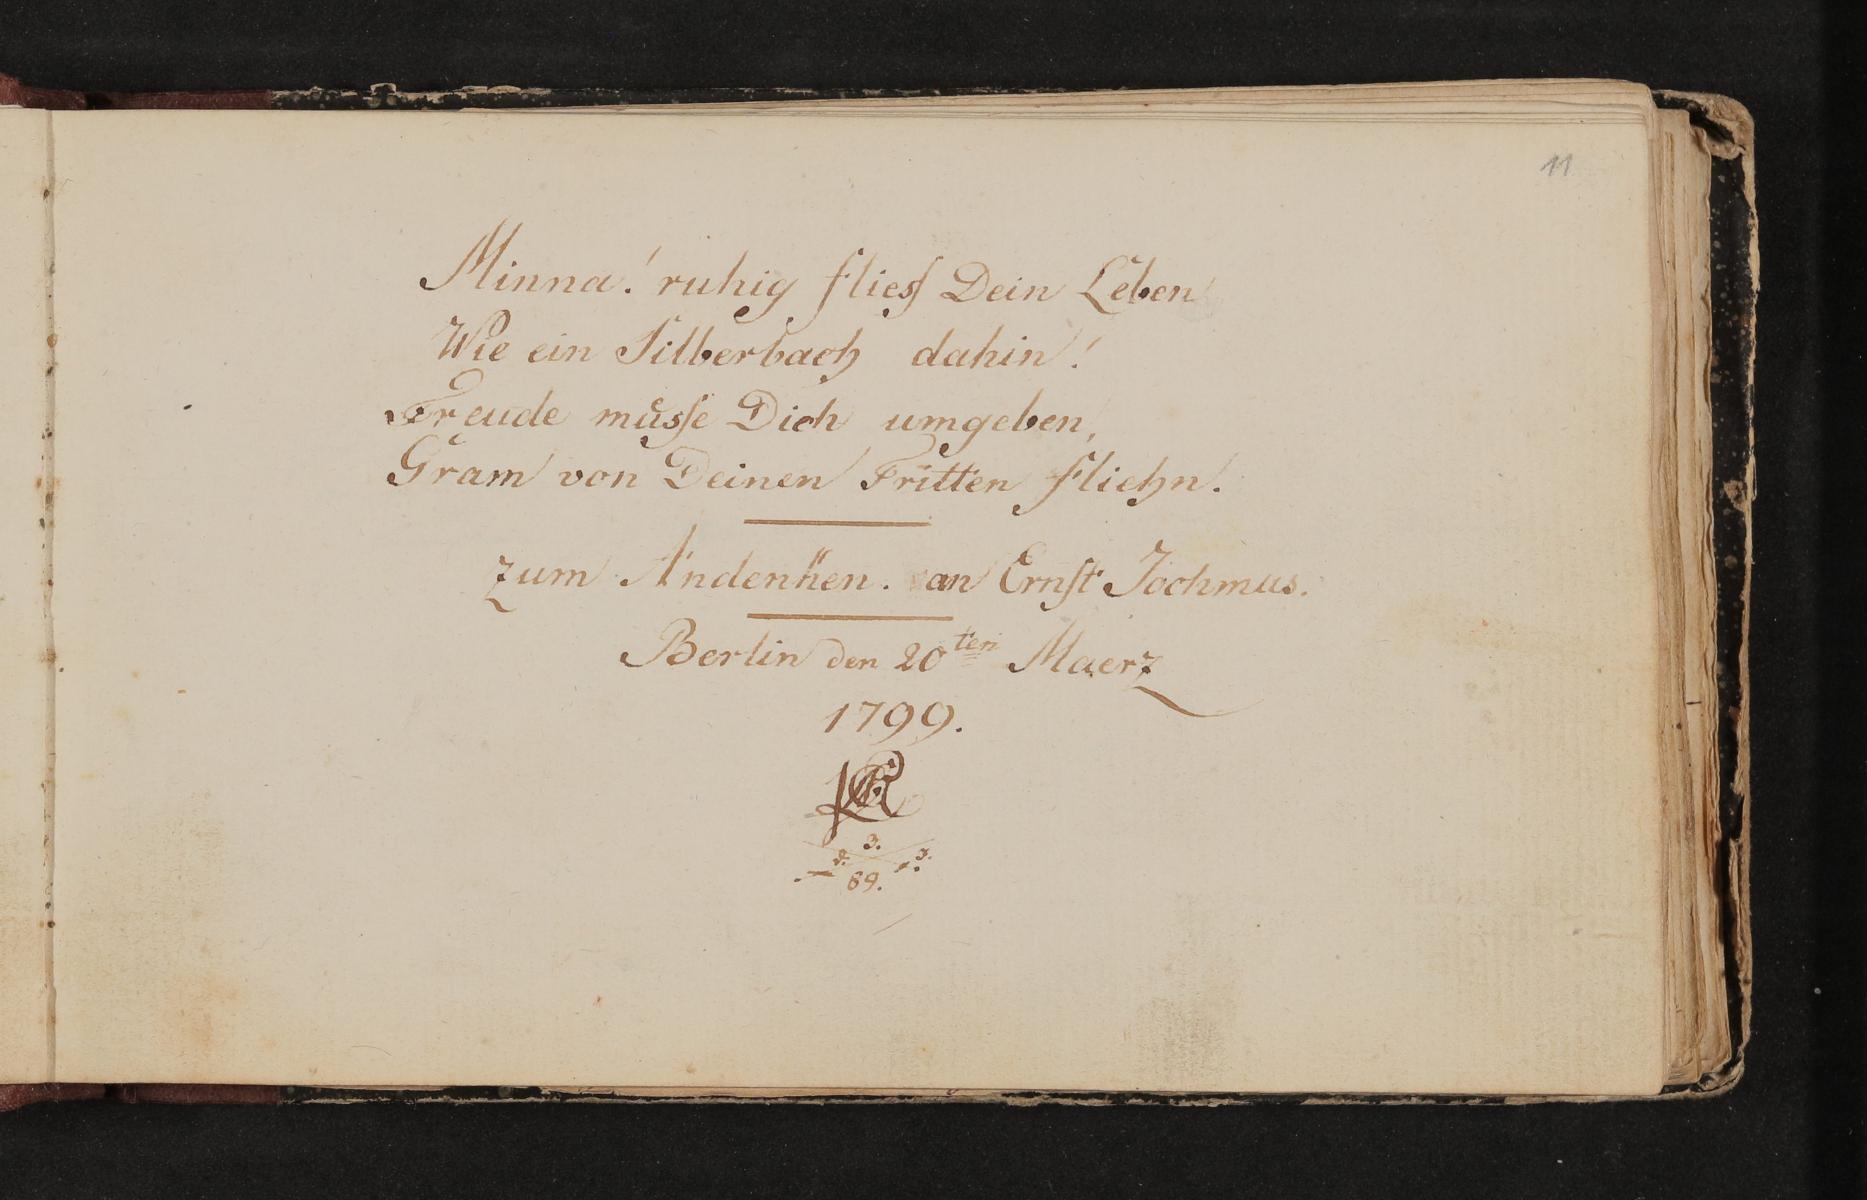 11
Minna! ruhig fliess Dein Leben
Wie ein Silberbach dahin!
Freude müsse Dich umgeben,
Gram von Deinen Tritten fliehn.
zum Andenken. an Ernst Jochmus.
Berlin den 20ten Maerz
1799.
3.
89.